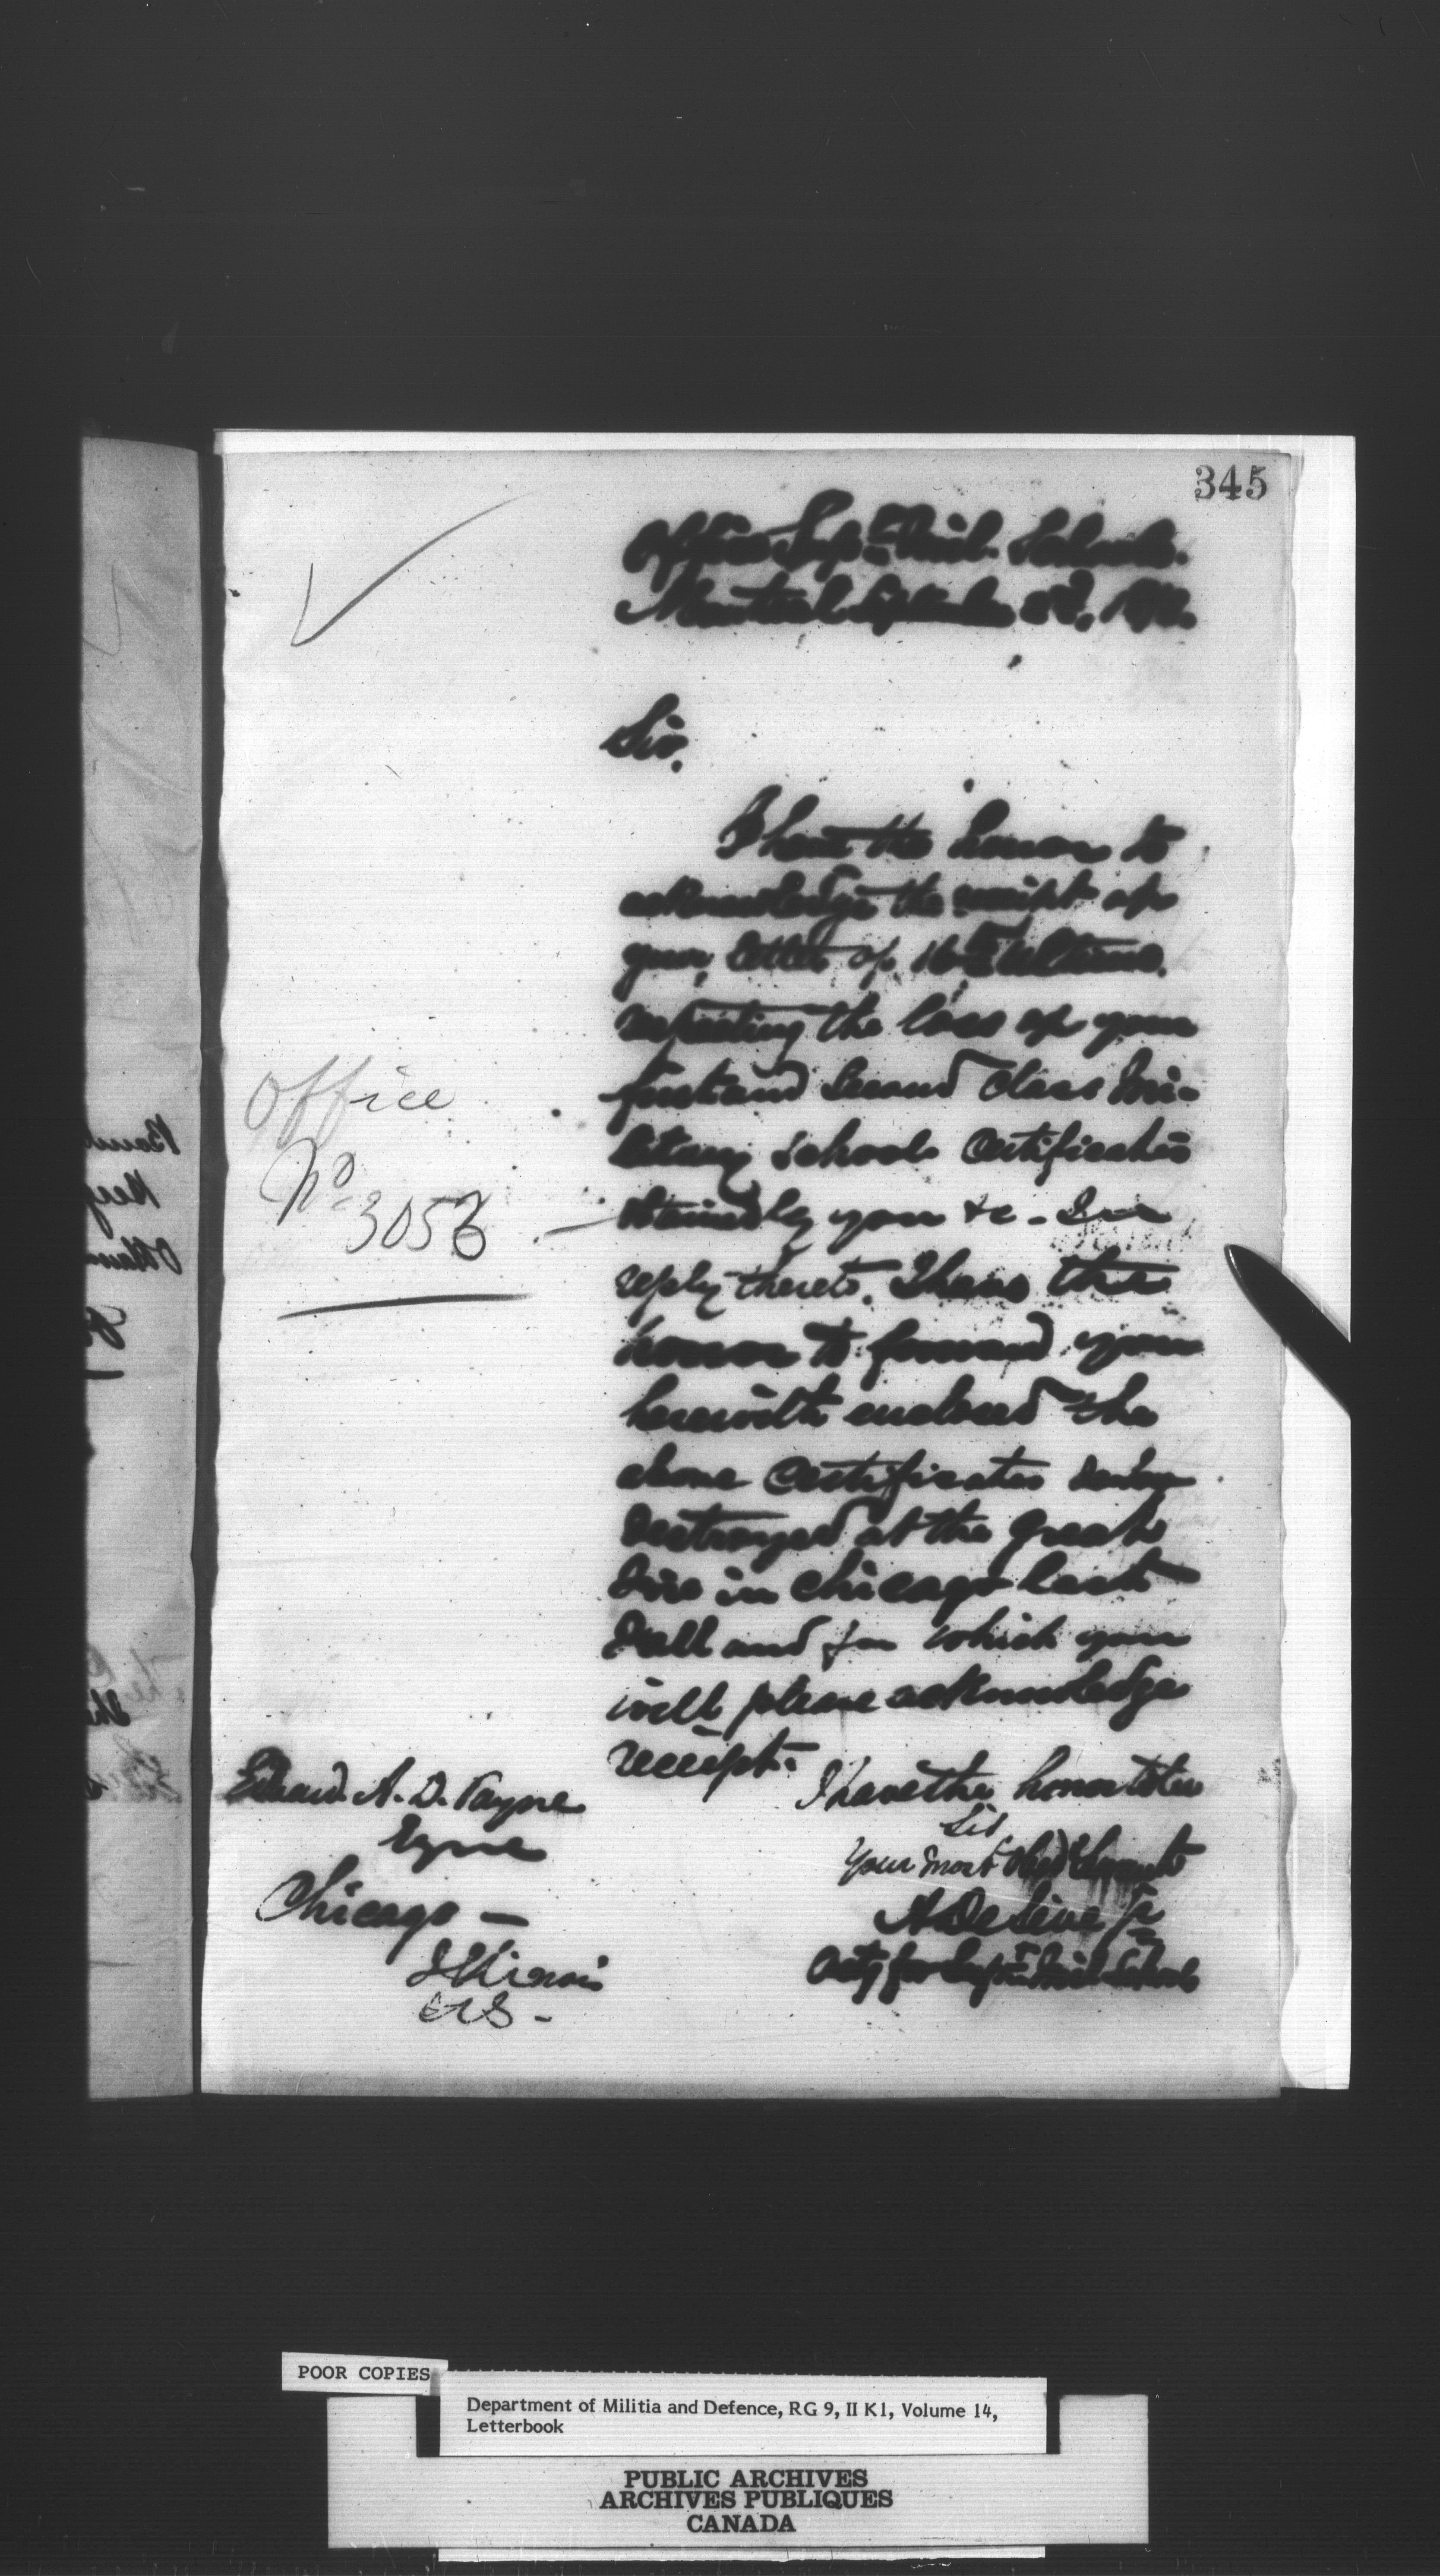 345
Office Supt. Mil. Schools.
Montreal September 1872.
Sir,
I have the honor to
acknowledge the receipt of
your letter of 16th Ultimo,
respecting the loss of your
first and Second Class Mi-
litary Schools Certificates
obtained by you &c - In
reply thereto, I have the
honor to forward you
herewith enclosed the
above Certificates
destroyed at the great
Fire in Chicago last
Fall and for which you
will please acknowledge
receipt.
Office
No. 3053
I have the honor to be
Sir
Your most Obed Servant
A DeLeve Jr
Actg for Supt. Mil Schools
Edward A. D. Payne
Esqre
Chicago -
Illinois
U.S. -
POOR COPIES
Department of Militia and Defence, RG 9, II K1, Volume 14,
Letterbook
PUBLIC ARCHIVES
ARCHIVES PUBLIQUES
CANADA